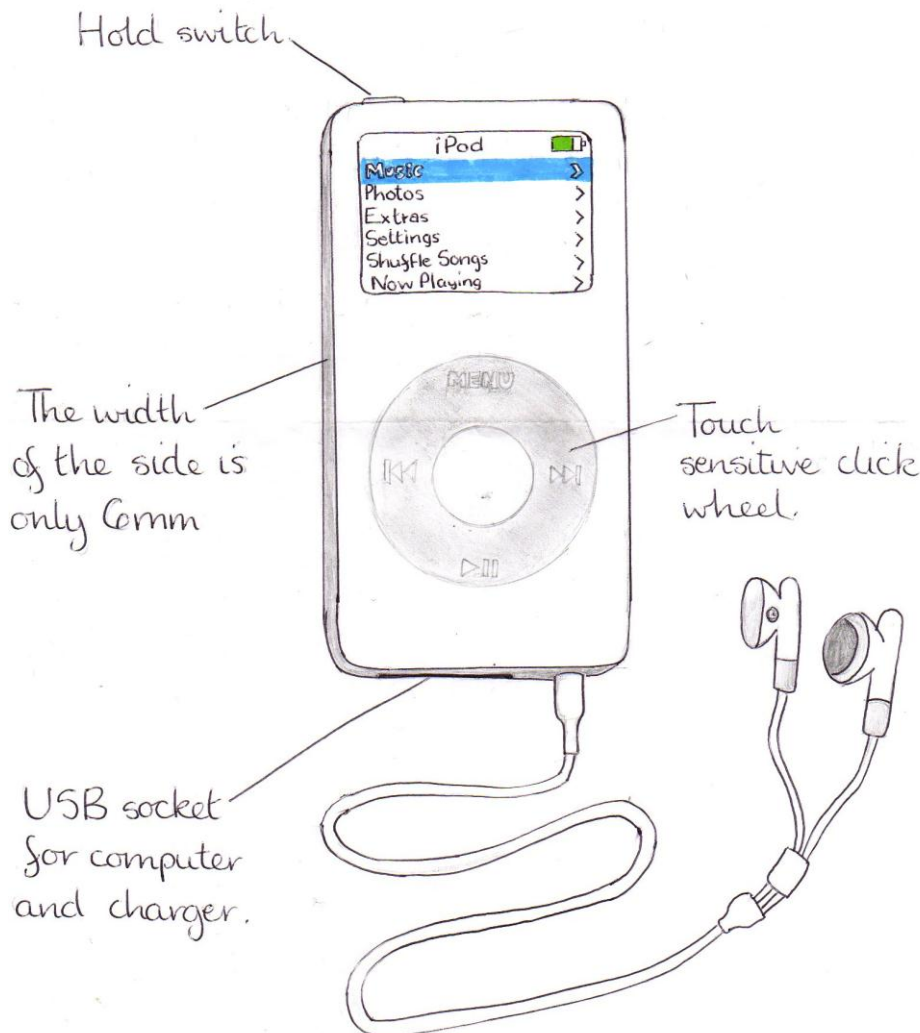 Hold switch
iPod
Music
Photos
Extras
Settings
Shuffle Songs
Now Playing
MENU
The width
of the side is
only 6mm
Touch
sensitive click
wheel.
USB socket
for computer
and charger.